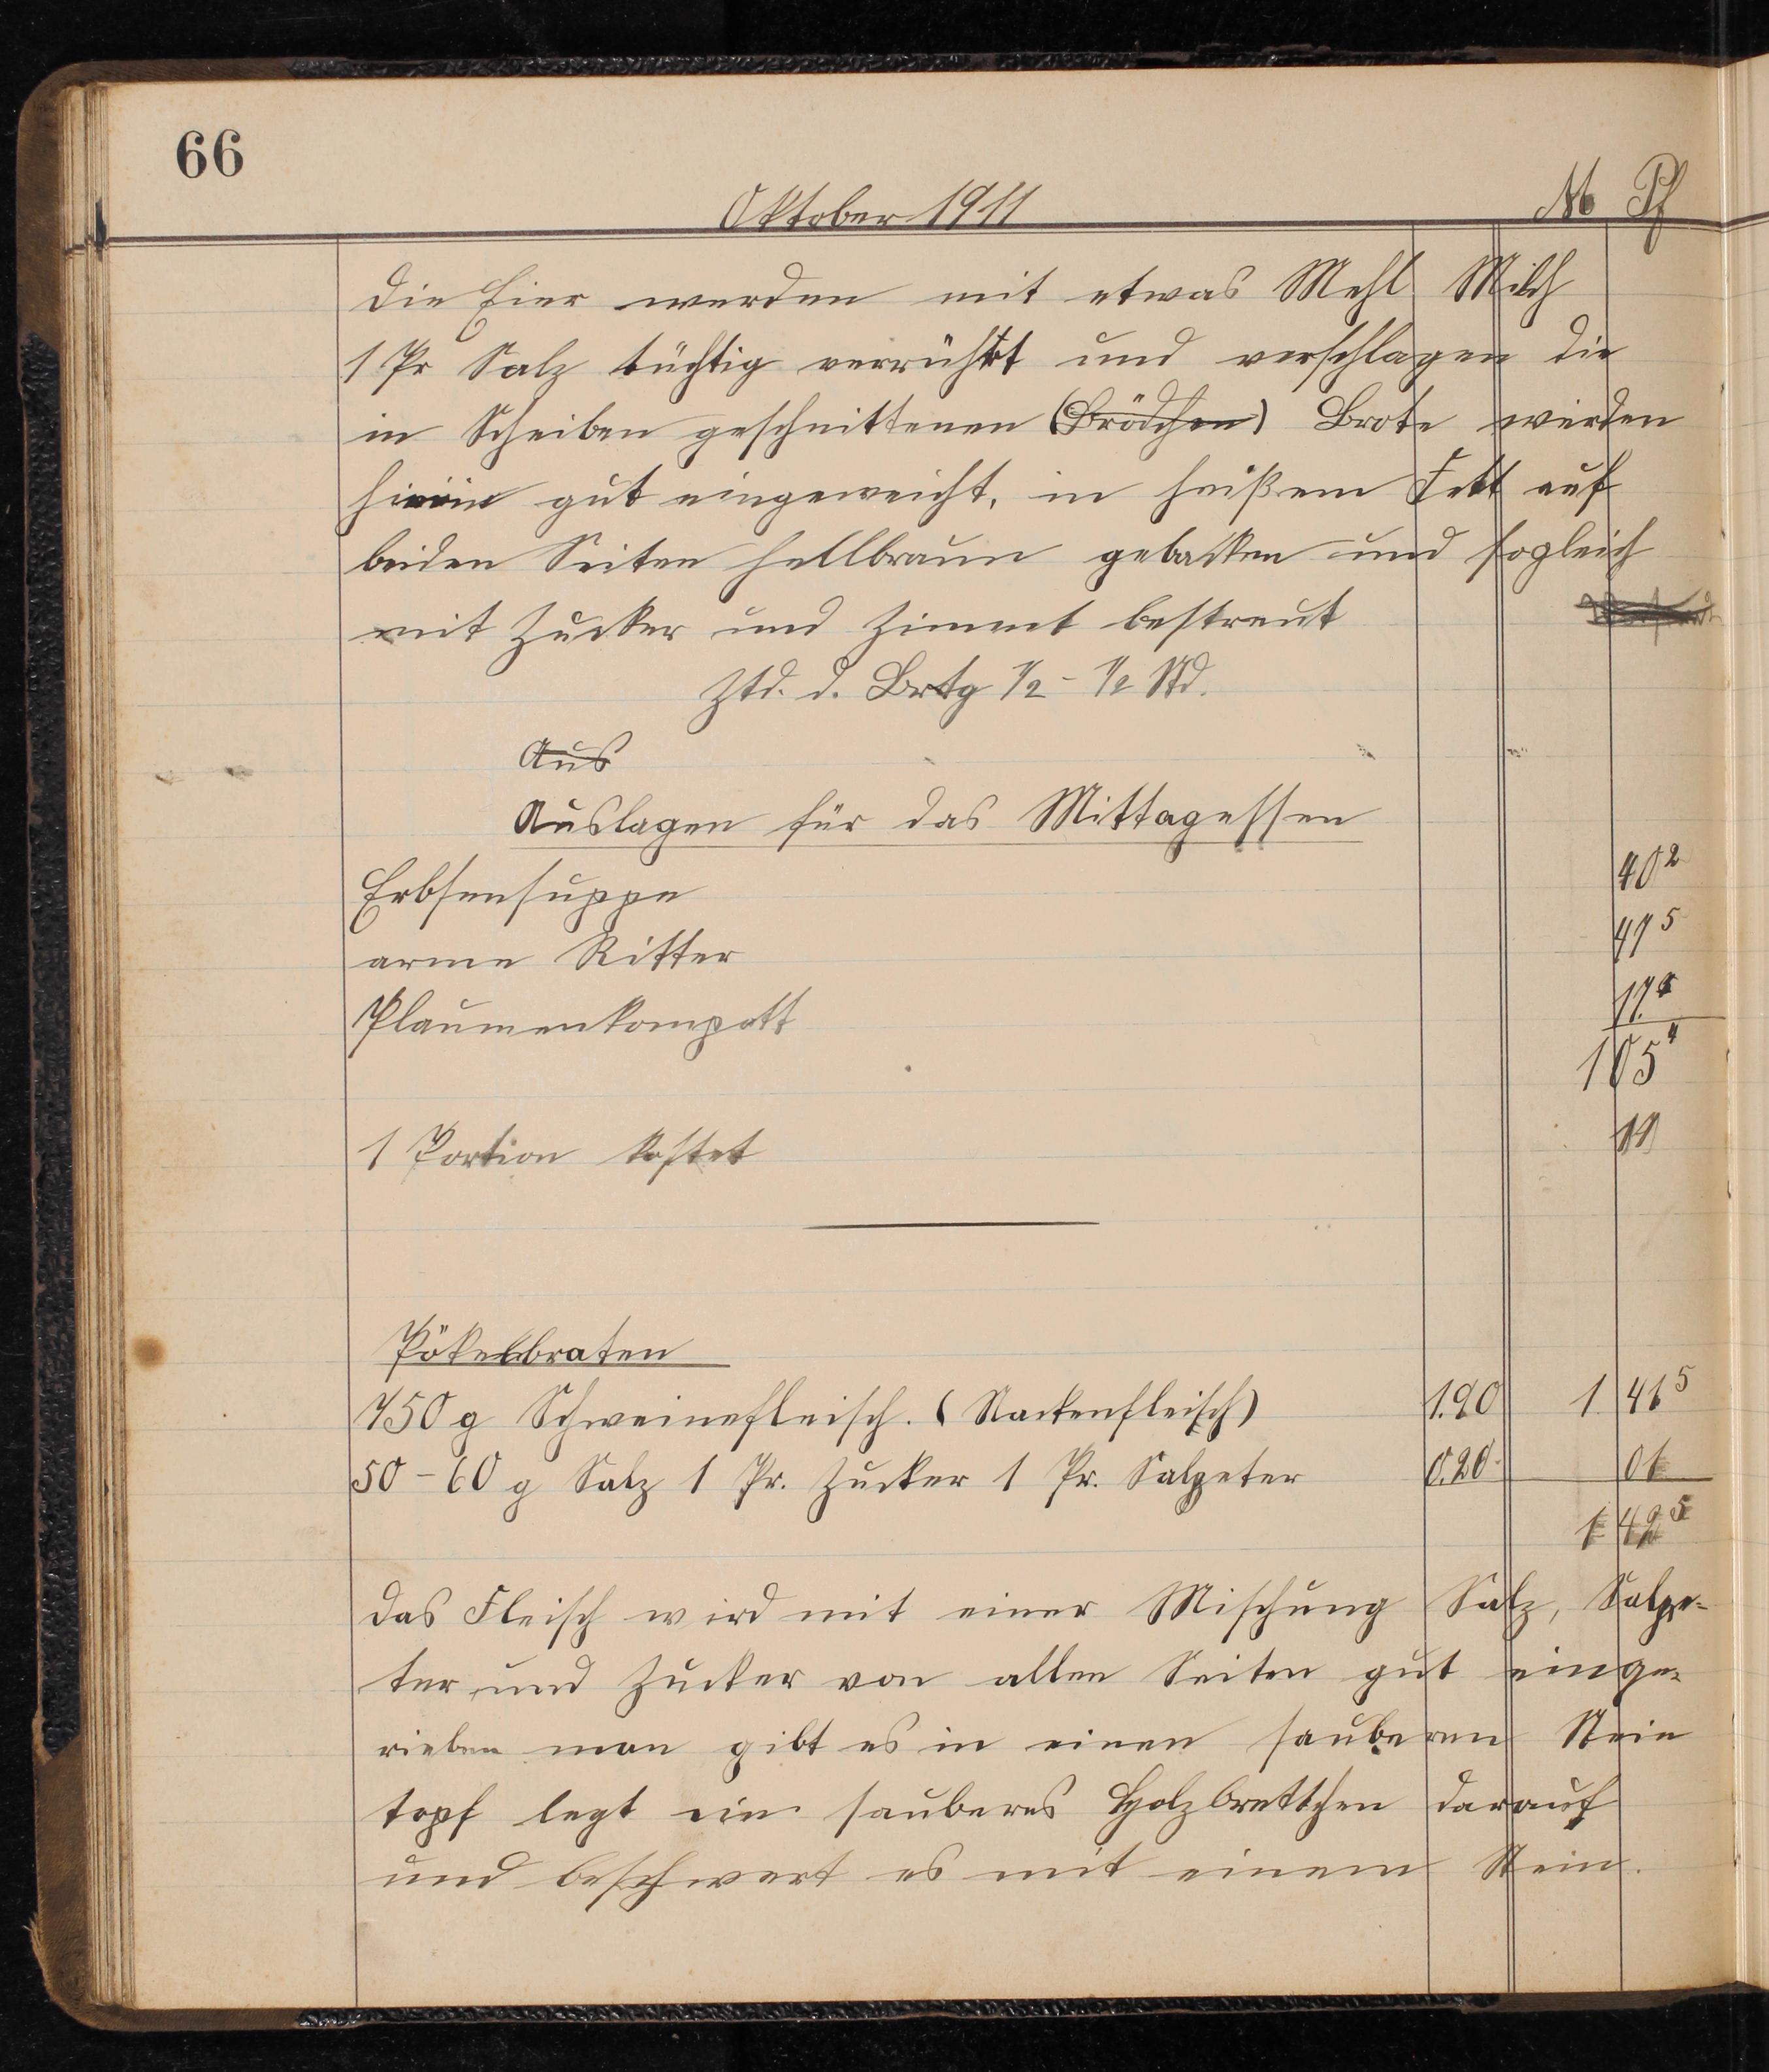 66
Oktober 1911 M Pf
die Eier werden mit etwas Mehl Milch
1 Pr Salz tüchtig verrührt und verschlagen die
in Scheiben geschnittenen (Brödchen) Brote werden
hierin gut eingeweicht, in heißem Fett auf
beiden Seiten hellbraun gebacken und sogleich
mit Zucker und Zimmt bestreut
Ztd. d. Brtg 1/2 - 1/2 Std.
Aus
Auslagen für das Mittagessen
Erbsensuppe 40 2
arme Ritter 47 5
Plaumenkompott 17.
105 4
1 Portion kostet
Pökelbraten
750 g Schweinefleisch. (Nackenfleisch) 1.90 1 41 5
50 - 60 g Salz 1 Pr. Zucker 1 Pr. Salpeter 0.20 01
1 42 5
das Fleisch wird mit einer Mischung Salz, Salpe-
ter und Zucker von allen Seiten gut einge-
rieben man gibt es in einen sauberen Stein
topf legt ein sauberes Holzbrettchen darauf
und beschwert es mit einem Stein.